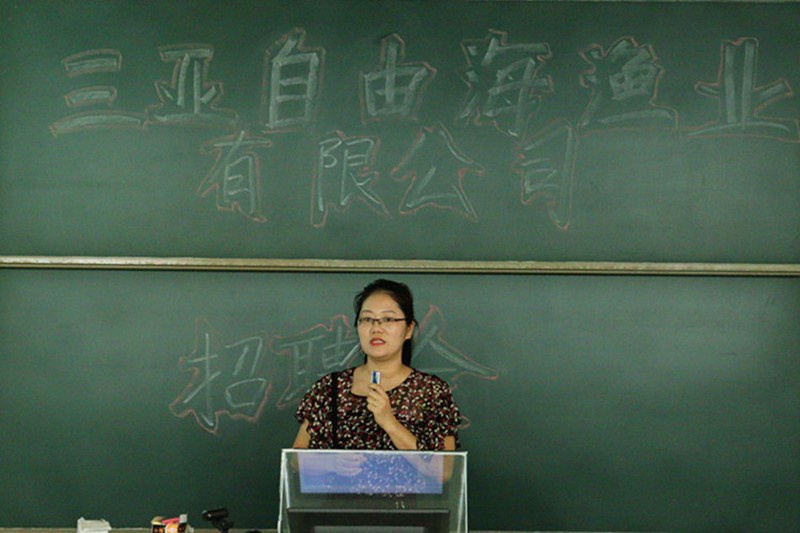 三亚自由海渔业
有限公司
招聘会